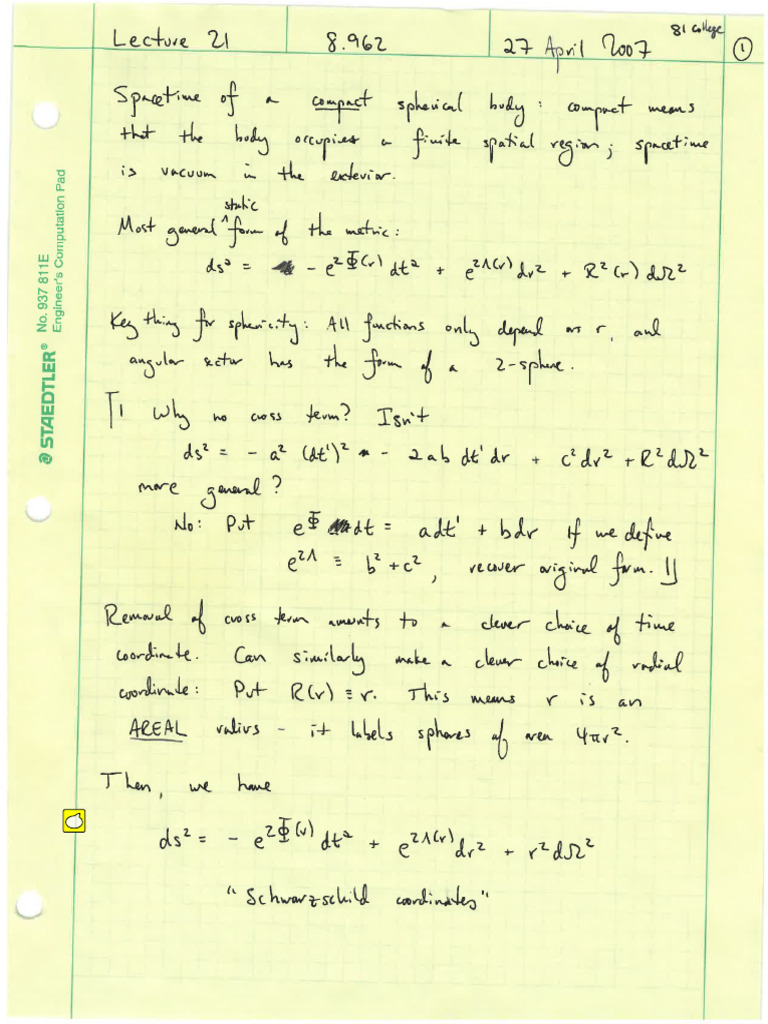 Lecture 21 8.962 27 April 2007 81 college 1
Spacetime of a compact spherical body: compact means
that the body occupies a finite spatial region; spacetime
is vacuum in the exterior.
static
Most general ^ form of the metric:
ds² = - e^{2Φ(r)} dt² + e^{2Λ(r)} dr² + R²(r) dΩ²
Key thing for sphericity: All functions only depend on r, and
angular sector has the form of a 2-sphere.
⟦ Why no cross term? Isn't
ds² = - a² (dt')² - 2ab dt' dr + c² dr² + R² dΩ²
more general?
No: Put e^Φ dt = adt' + bdr If we define
e^{2Λ} ≡ b² + c², recover original form. ⟧
Removal of cross term amounts to a clever choice of time
coordinate. Can similarly make a clever choice of radial
coordinate: Put R(r) ≡ r. This means r is an
AREAL radius - it labels spheres of area 4πr².
Then, we have
ds² = - e^{2Φ(r)} dt² + e^{2Λ(r)} dr² + r² dΩ²
"Schwarzschild coordinates"
STAEDTLER® No. 937 811E
Engineer's Computation Pad